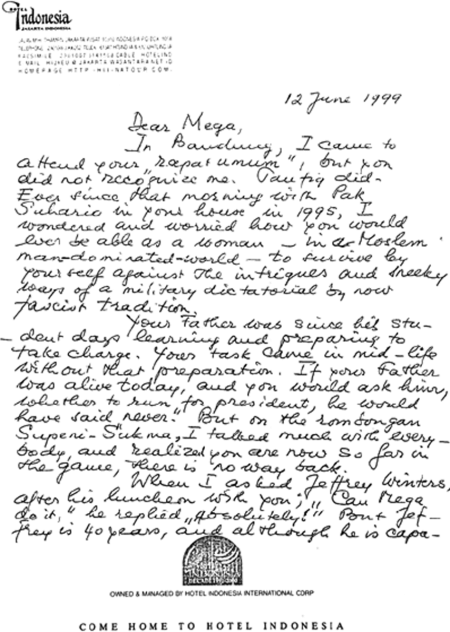 HOTEL
Indonesia
JAKARTA INDONESIA
12 June 1999
Dear Mega,
In Bandung, I came to
attend your „rapat umum", but you
did not recognize me. Taufiq did-
Ever since that morning with Pak
Suhario in your house in 1995, I
wondered and worried how you would
ever be able as a woman - in a Moslem
man-dominated-world - to survive by
yourself against the intrigues and sneeky
ways of a military dictatorial by now
fascist tradition.
Your Father was since his stu-
-dent days learning and preparing to
take charge. Your task came in mid-life
without that preparation. If your Father
was alive today, and you would ask him,
whether to run for president, he would
have said never." But on the rombongan
Supeni-Sukma, I talked much with every-
body, and realized you are now so far in
the game, there is no way back.
When I asked Jeffrey Winters,
after his luncheon with you; „Can Mega
do it," he replied „Absolutely!" But Jef-
frey is 40 years, and although he is capa-
OWNED & MANAGED BY HOTEL INDONESIA INTERNATIONAL CORP
COME HOME TO HOTEL INDONESIA